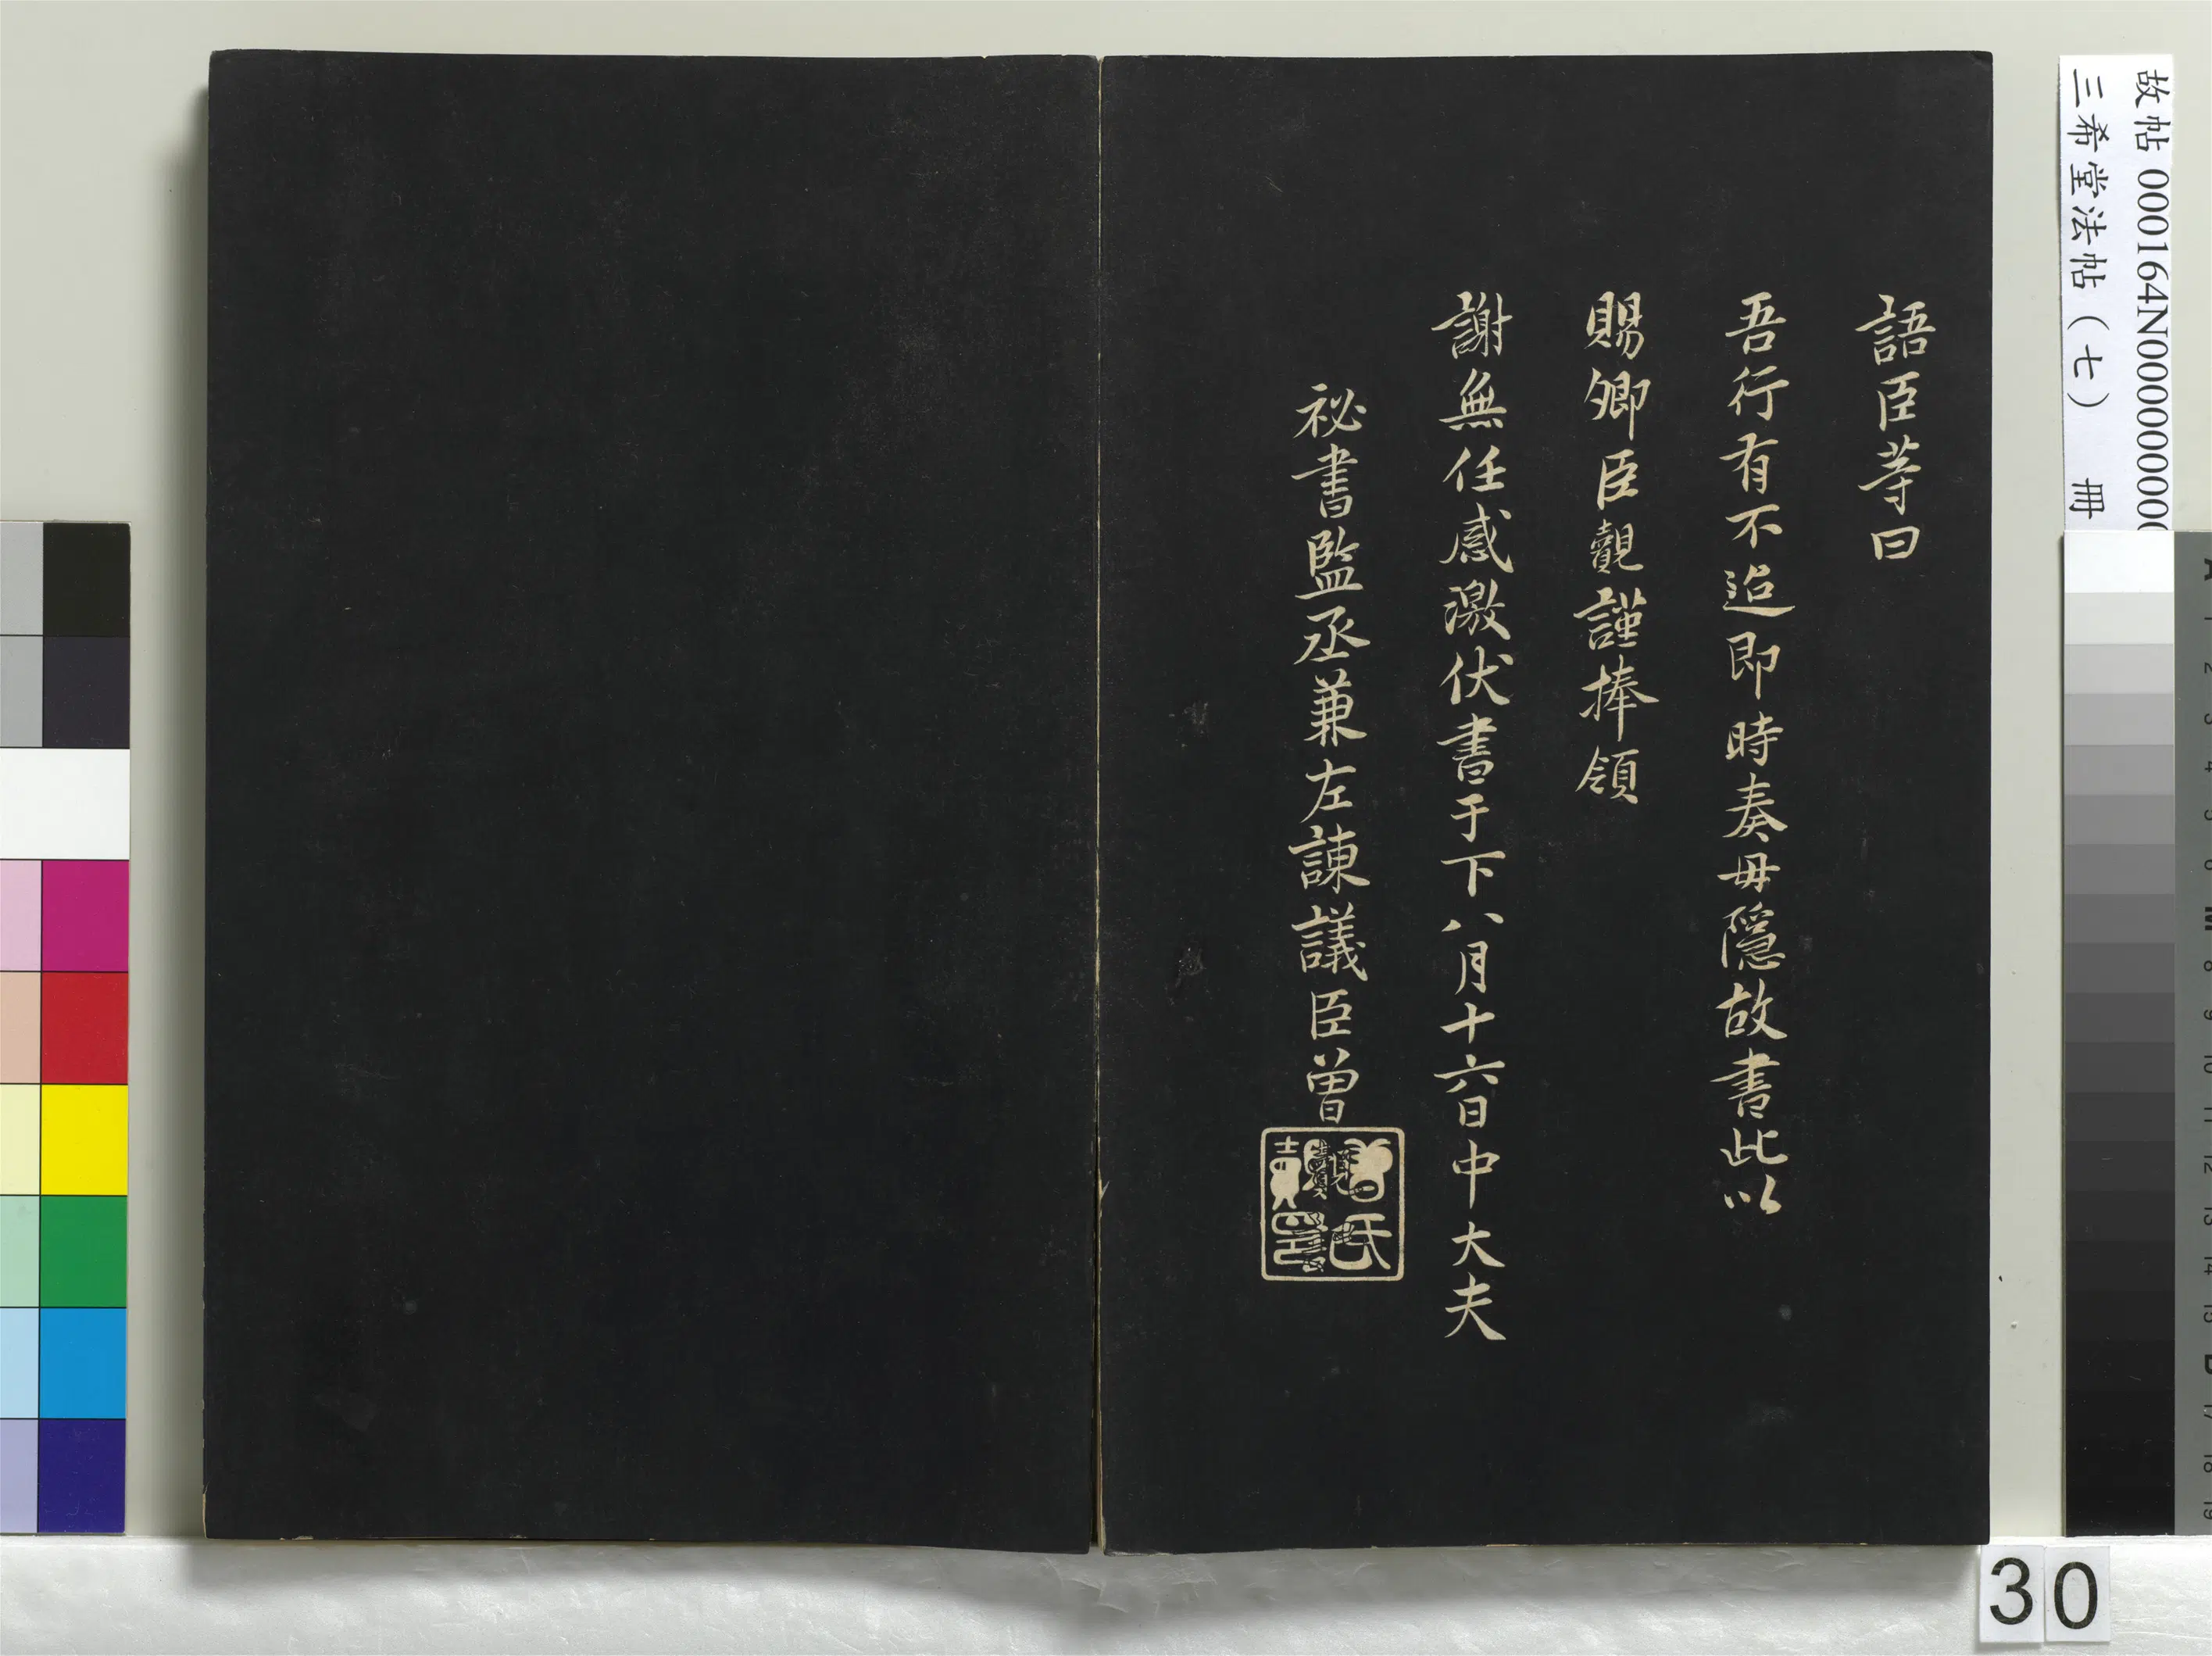 語臣等曰
吾行有不迨即時奏毋隱故書此以
賜卿臣覿謹捧領
謝無任感激伏書于下八月十六日中大夫
祕書監丞兼左諫議臣曾覿
曾氏
故帖 000164N000000000
三希堂法帖（七） 冊
30